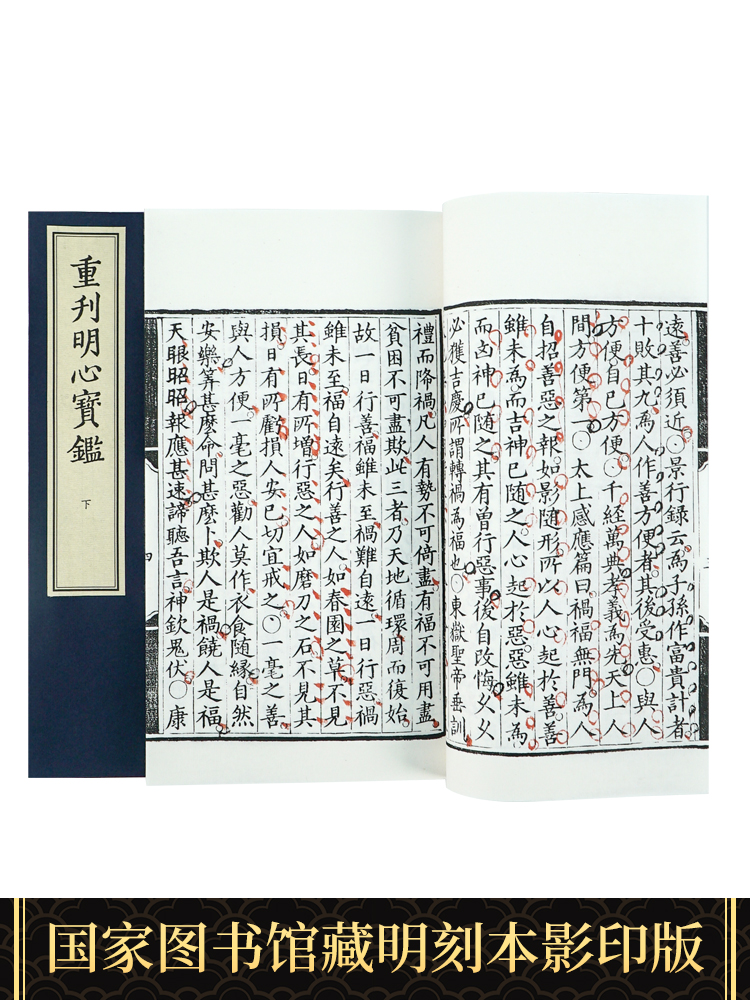 重刋明心寶鑑
下
遠善必須近○景行錄云為子孫作富貴計者
十敗其九為人作善方便者其後受惠○與人
方便自己方便○千經萬典孝義為先天上人
間方便第一○太上感應篇曰禍福無門為人
自招善惡之報如影隨形所以人心起於善善
雖未為而吉神已隨之人心起於惡惡雖未為
而凶神已隨之其有曾行惡事後自改悔久久
必獲吉慶所謂轉禍為福也○東嶽聖帝垂訓
禮而降禍凡人有勢不可倚盡有福不可用盡
貧困不可盡欺此三者乃天地循環周而復始
故一日行善福雖未至禍難自遠一日行惡禍
雖未至福自遠矣行善之人如春園之草不見
其長日有所增行惡之人如磨刀之石不見其
損日有所虧損人安己切宜戒之○一毫之善
與人方便一毫之惡勸人莫作衣食隨緣自然
安樂筭甚麼命問甚麽卜欺人是禍饒人是福
天眼昭昭報應甚速諦聽吾言神欽鬼伏○康
四
国家图书馆藏明刻本影印版